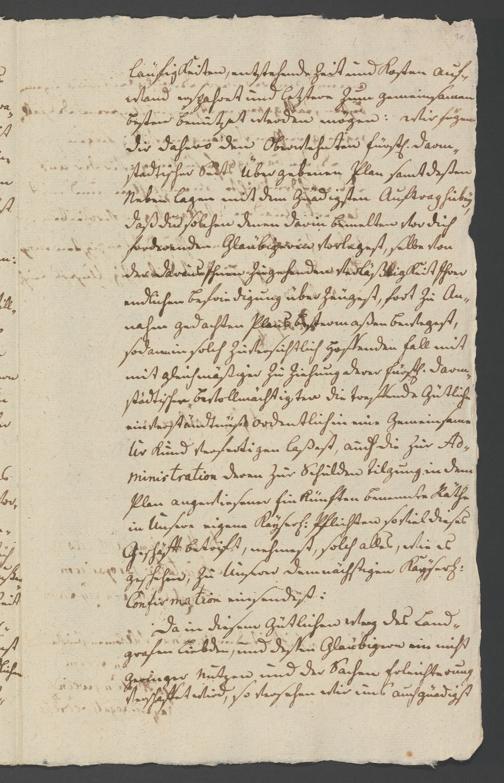 läufigkeiten, entstehende Zeit und Kosten auf-
wand ersparet und letztere zum gemeinsamen
besten benützet werden mögen: wir fügen
dir dahero den Fürstl. Darm-
städtischer Seits übergebenen Plan samt dessen
Neben lagen mit dem gnädigsten Auftrag hiebey
daß du solchen denen darin benannten vor dich
forderenden Glaubigern vorlegest, selbe von
der daraus Ihnen zugehenden Ihrer
endlichen befriedigung überzeugest, fort zu An-
nahm gedachten Plans bestermaßen bewegest,
sodann in solch zuversichtlich hoffenden fall mit
mit gleichmäßiger Zuziehung derer fürstl. Darm-
städtischer bevollmächtigten die treffende Gütliche
einverständnuß ordentlich in eine Gemeinsame
Urkund verfertigen laßest, auch die zur Ad-
ministration deren zur Schulden tilgung in dem
Plan angewiesener Einkünften benannte Räthe
in Unsere eigene Kayserl: Pflichten so viel dieses
Geschäft betrift, nehmest, solch alles, wie es
geschehen, zu Unserer demnächstigen Kayserl:
Confirmation einsendest:
Da in diesem Gütlichen weeg des Land-
grafen Liebden, und dessen Glaubigern ein nicht
geringer Nutzen und der Sachen Erleichterung
verschaffet wird, so versehen wir uns allergnädigst